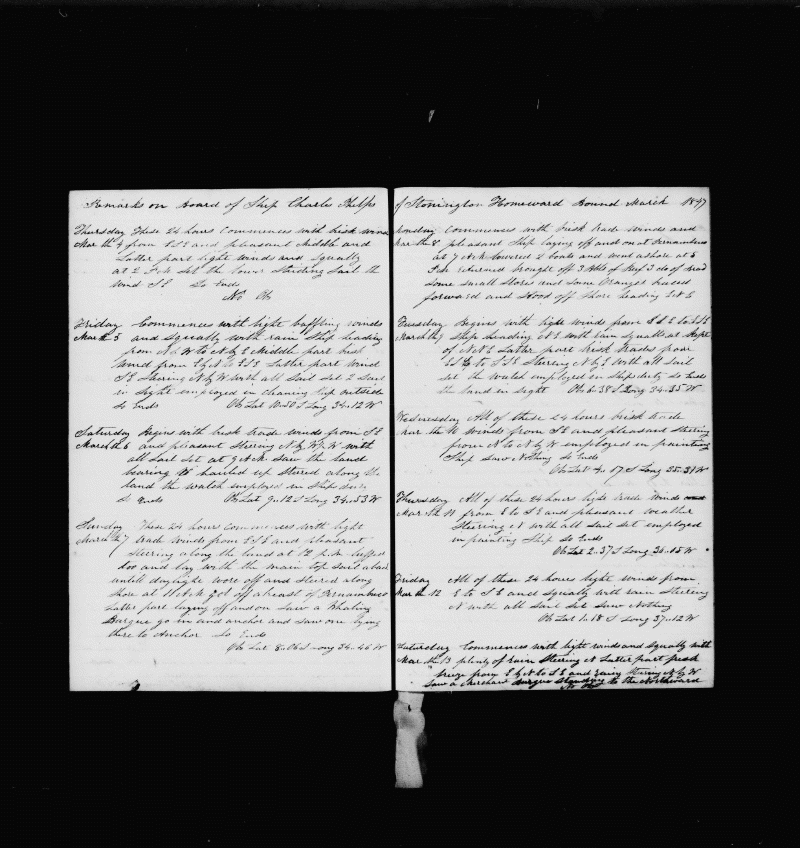 Remarks on Board of Ship Charles Phelps
Thursday These 24 hours Commences with brisk winds
March 4 from ESE and pleasant Middle and
Latter part light winds and Squally
at 2 P.M. Set the lower Studing Sail the
wind SE So Ends
No Ob
Friday Commences with light baffling winds
March 5 and Squally with rain Ship heading
from N by W to N by E Middle part brisk
wind from E by N to ESE Latter part wind
SE Stering N by W with all Sail Set 2 Sail
in Sight employed in cleaning Ship outside
So Ends Ob Lat 10.50 S Long 34.12 W
Saturday Begins with brisk trade winds from SE
March the 6 and pleasant Steering N by W ½ W with
all Sail Set at 9 A.M. Saw the land
bearing W hauled up Steered along the
land the watch employed in Ships duties
So Ends Ob Lat 9.12 S Long 34.53 W
Sunday These 24 hours Commences with light
March the 7 trade winds from ESE and pleasant
Steering along the land at 12 P.M. luffed
too and lay with the main top Sail aback
untill daylight wore off and Steered along
Shore at 11 A.M. got off abreast of Pernambuco
Latter part laying off and on Saw a Whaling
Barque go in and anchor and saw one lying
there to Anchor So Ends
Ob Lat 8.06 S Long 34.46 W
of Stonington Homeward Bound March 1847
Monday Commences with brisk trade winds and
Mar the 8 pleasant Ship laying off and on at Pernambuco
at 7 A.M. lowered 2 boats and went ashore at 5
P.M. returned brought off 3 Bbls of Beef 3 do of Bread
Some Small Stores and Some Oranges braced
forward and Stood off Shore heading
Tuesday Begins with light winds from SE to ESE
March the 9 Ship heading NE with rain Squalls at
of NNE Latter part brisk trades from
ESE to SSE Steering N by E with all Sail
Set the watch employed in Ships duty So Ends
the land in Sight Ob 6.38 S Long 34.35 W
Wednesday All of these 24 hours brisk trade
Mar the 10 winds from SE and pleasant Steering
from N to N by W employed in painting
Ship Saw Nothing So Ends
Ob Lat 4.17 S Long 35.31 W
Thursday All of these 24 hours light trade winds
Mar the 11 from E to SE and pleasant weather
Steering N with all Sail Set employed
in painting Ship So Ends
Ob Lat 2.37 S Long 36.15 W
Friday All of these 24 hours light winds from
Mar the 12 E to SE and Squally with rain Steering
N with all Sail Set Saw Nothing
Ob Lat 1.18 S Long 37.12 W
Saturday Commences with light winds and Squally with
Mar the 13 plenty of rain Steering N Latter part fresh
breeze from E by N to SE and rainy Stering N by W
Saw a Merchant Barque Standing to the Northward
No Ob